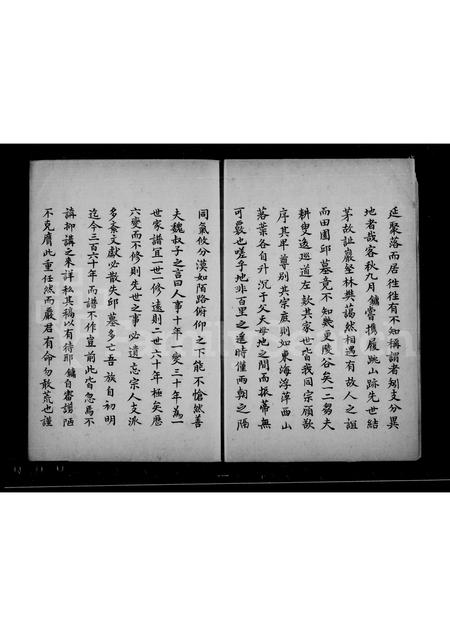 廷聚落而居徃徃有不知稱謂者矧支分異
地者哉客秋九月鏞嘗携履跳山跡先世結
茅故址巖壑林樊藹然相遇有故人之誼
而田園邱墓竟不知幾更陵谷矣一二芻夫
耕叟逡巡道左欵其家世皆我同宗顧欲
序其卑尊別其宗庶則如東海浮萍西山
落葉各自升沉于父天母地之間而根蒂無
可覈也嗟乎地非百里之遥時僅兩朝之隔
同氣攸分漠如陌路俯仰之下能不愴然善
夫魏叔子之言曰人事十年一變三十年為一
世家譜宜一世一修遠則二世六十年極矣歷
六變而不修則先世之事必遺忘宗人支派
多紊文獻必散失邱墓多亡吾族自初明
迄今三百六十年而譜不作豈前此皆忽焉不
講抑講之未詳私其稿以有待耶鏞自審譾陋
不克膺此重任然而嚴君有命勿敢荒也謹